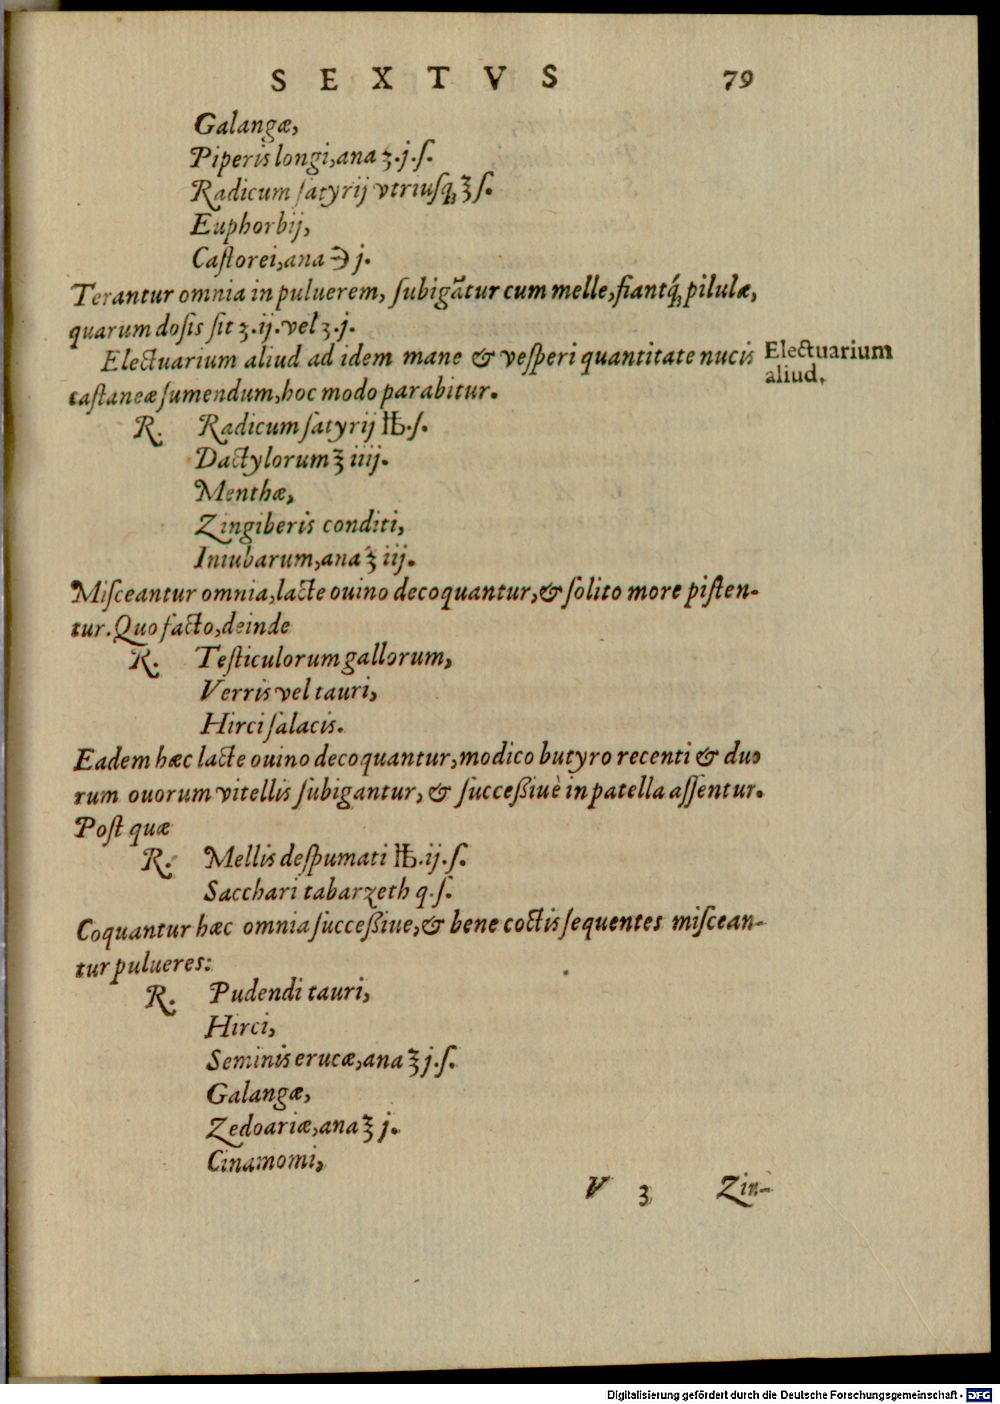 SEXTVS 79
Galangæ,
Piperis longi, ana ʒ.j.ſ.
Radicum ſatyrij vtriuſq; ℥ſ.
Euphorbij,
Caſtorei, ana ℈ j.
Terantur omnia in puluerem, ſubigãtur cum melle, fiantq́; pilulæ,
quarum doſis ſit ʒ.ij. vel ʒ.j.
Electuarium aliud ad idem mane & veſperi quantitate nucis
caſtaneæ ſumendum, hoc modo parabitur.
Electuarium
aliud.
R. Radicum ſatyrij ℔.ſ.
Dactylorum ℥ iiij.
Menthæ,
Zingiberis conditi,
Iniubarum, ana ℥ iij.
Miſceantur omnia, lacte ouino decoquantur, & ſolito more piſten-
tur. Quo facto, deinde
R. Teſticulorum gallorum,
Verris vel tauri,
Hirci ſalacis.
Eadem hæc lacte ouino decoquantur, modico butyro recenti & duo
rum ouorum vitellis ſubigantur, & ſucceßiuè in patella aſſentur.
Poſt quæ
R. Mellis deſpumati ℔.ij.ſ.
Sacchari tabarzeth q.ſ.
Coquantur hæc omnia ſucceßiue, & bene coctis ſequentes miſcean-
tur pulueres:
R. Pudendi tauri,
Hirci,
Seminis erucæ, ana ℥ j.ſ.
Galangæ,
Zedoariæ, ana ℥ j.
Cinamomi,
V 3 Zin-
Digitalisierung gefördert durch die Deutsche Forschungsgemeinschaft - DFG